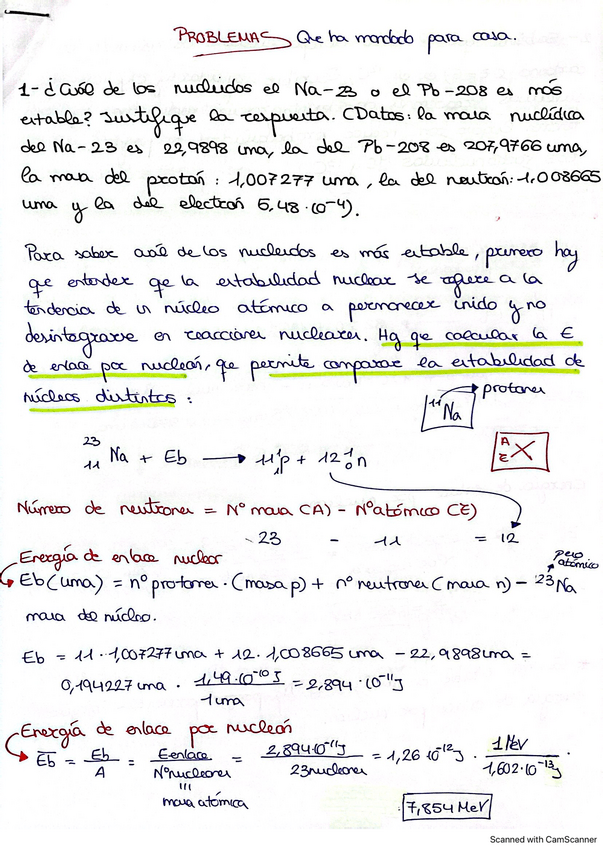 PROBLEMAS Que ha mandado para casa.
1- ¿Cuál de los nucleidos el Na-23 o el Pb-208 es más
estable? Justifique la respuesta. (Datos: la masa nuclídica
del Na-23 es 22,9898 uma, la del Pb-208 es 207,9766 uma,
la masa del protón: 1,007277 uma, la del neutrón: 1,008665
uma y la del electrón 5,48·10⁻⁴).
Para saber cuál de los nucleidos es más estable, primero hay
que entender qe la estabilidad nuclear se refiere a la
tendencia de un núcleo atómico a permanecer unido y no
desintegrarse en reacciones nucleares. Hay qe calcular la E
de enlace por nucleón, qe permite comparar la estabilidad de
núcleos distintos:
¹¹Na → protones
A Z X
²³₁₁Na + Eb → 11 ¹₁p + 12 ¹₀n
Número de neutrones = Nº masa (A) - Nº atómico (Z)
23 - 11 = 12
Energía de enlace nuclear
peso atómico
Eb (uma) = nº protones · (masa p) + nº neutrones (masa n) - ²³Na
masa del núcleo.
Eb = 11 · 1,007277 uma + 12 · 1,008665 uma - 22,9898 uma =
0,194227 uma · 1,49·10⁻¹⁰ J / 1 uma = 2,894 · 10⁻¹¹ J
Energía de enlace por nucleón
Eb = Eb / A = E enlace / Nº nucleones = 2,894·10⁻¹¹ J / 23 nucleones = 1,26·10⁻¹² J · 1 MeV / 1,602·10⁻¹³ J ·
masa atómica
7,854 MeV
Scanned with CamScanner